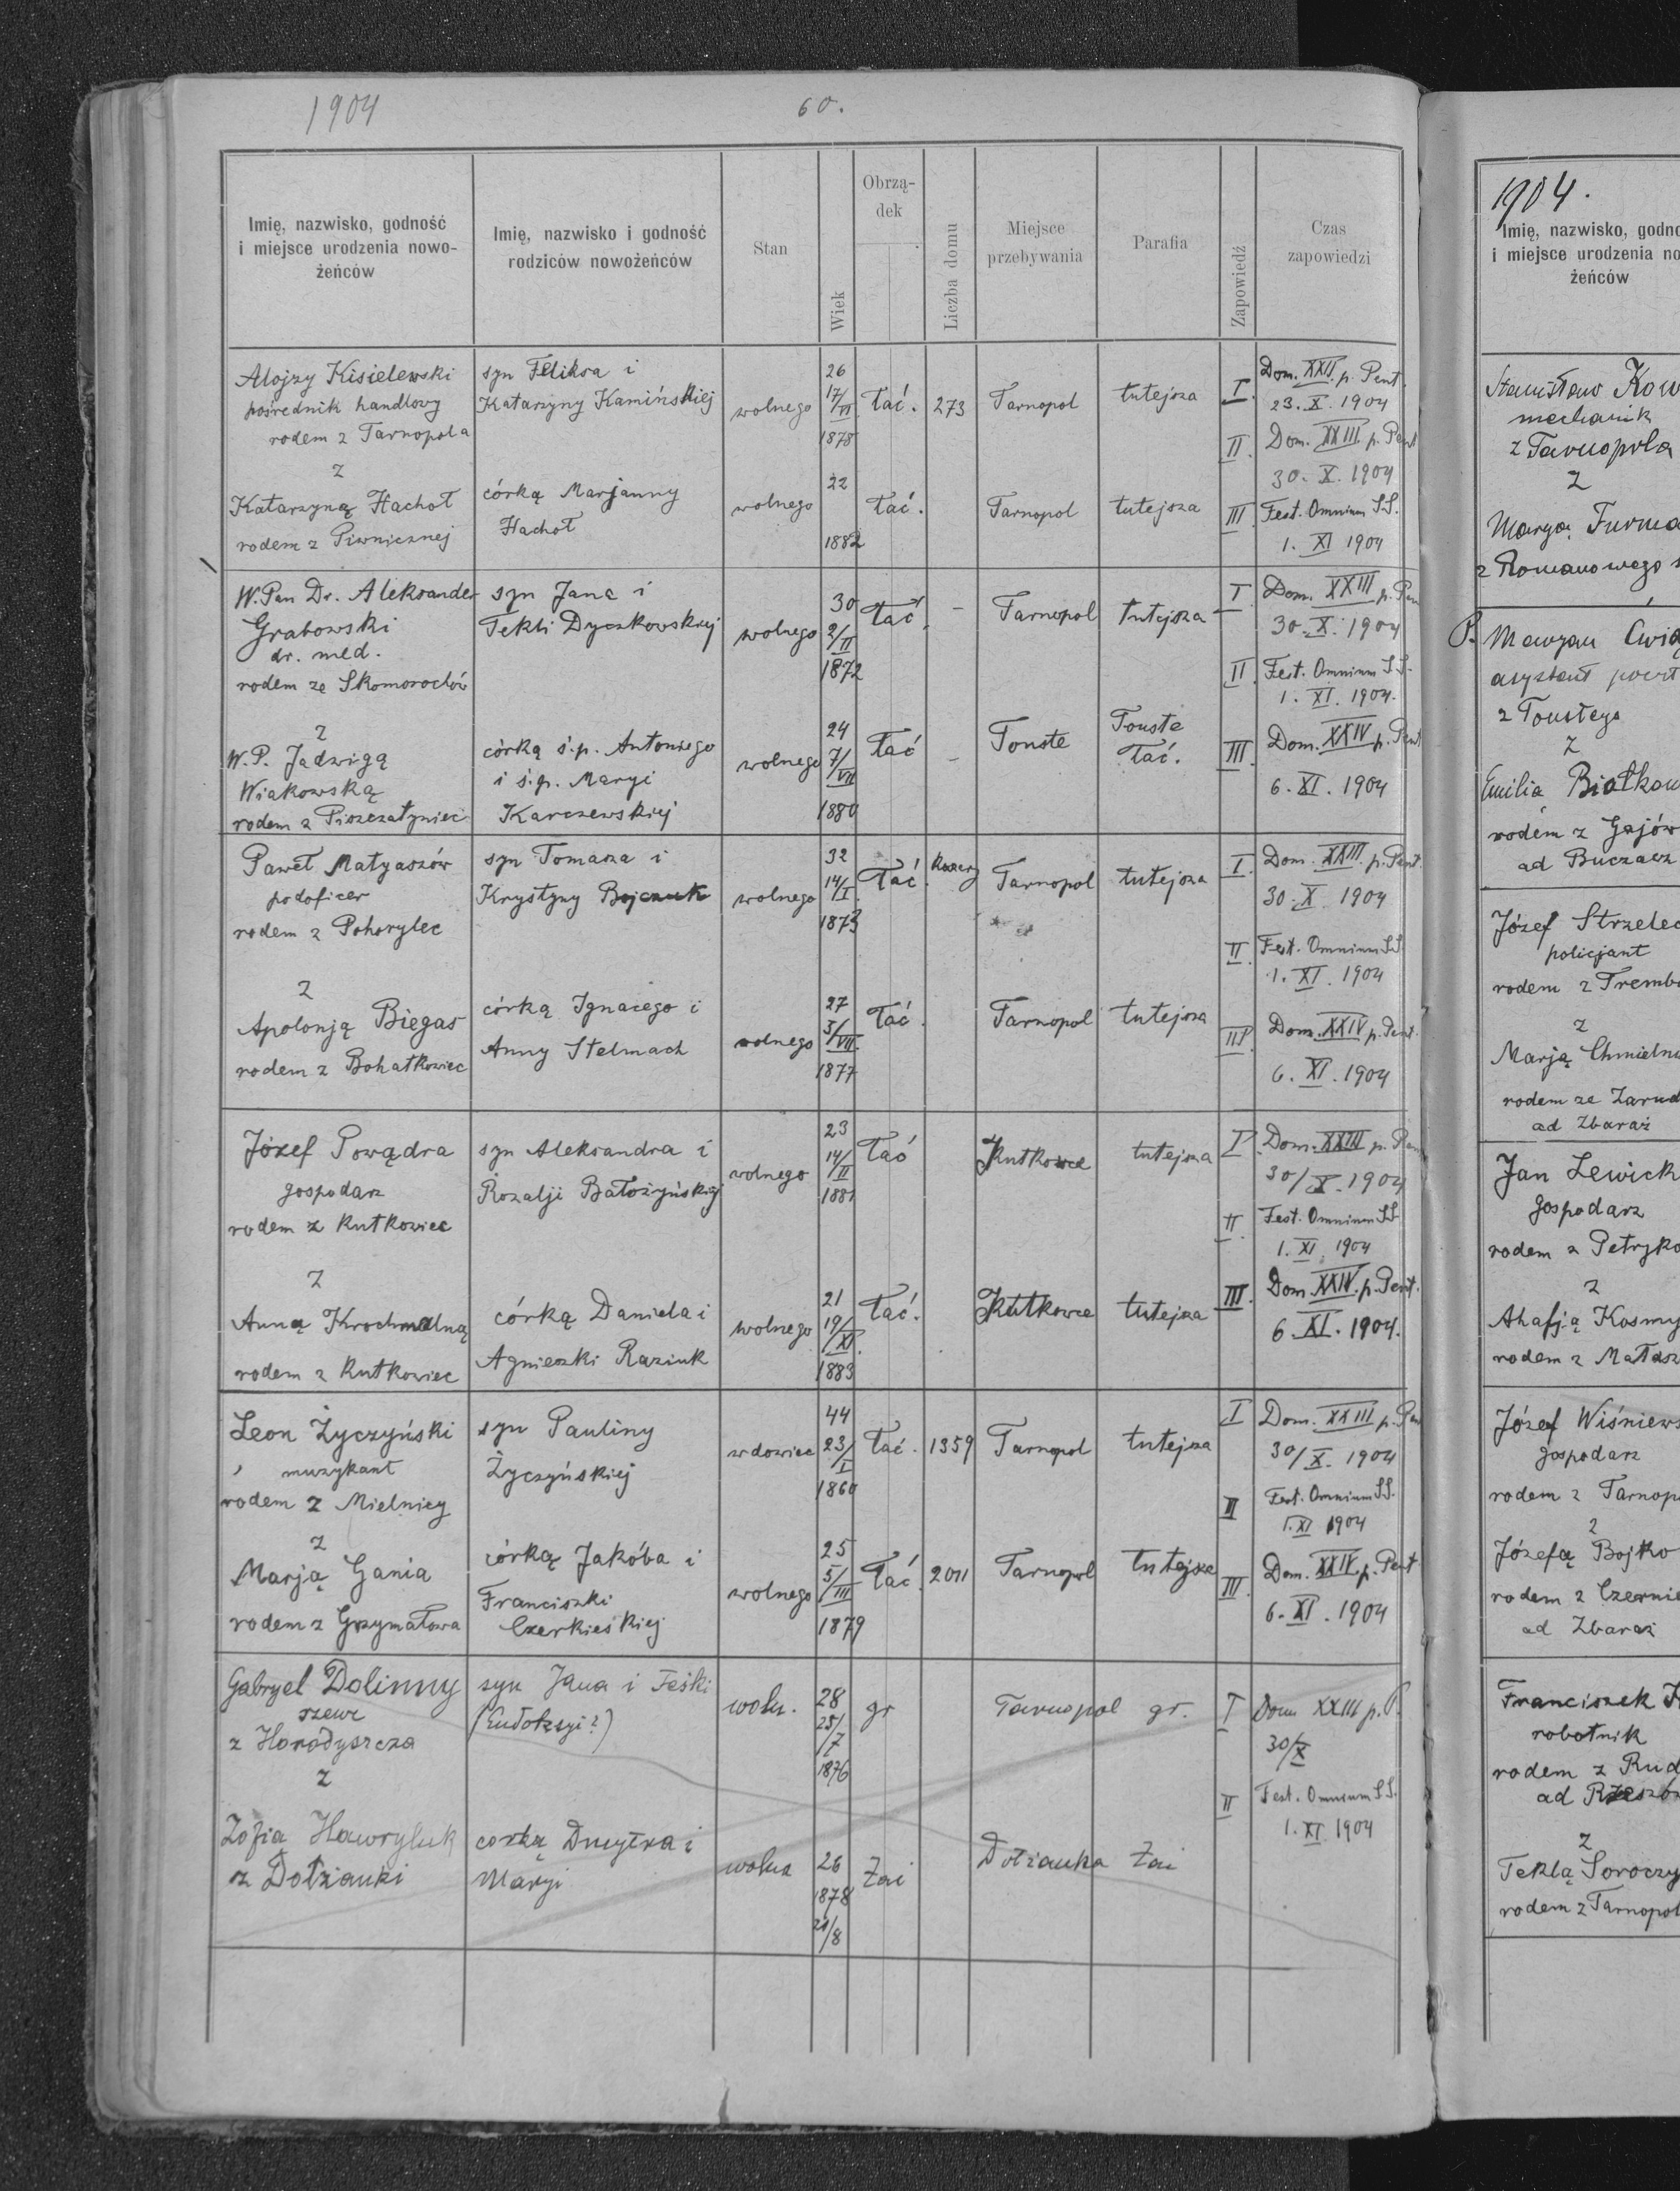 1904
60.
Imię, nazwisko, godność
i miejsce urodzenia nowo-
żeńców
Imię, nazwisko i godność
rodziców nowożeńców
Stan
Wiek
Obrzą-
dek
Liczba domu
Miejsce
przebywania
Parafia
Zapowiedź
Czas
zapowiedzi
Alojzy Kisielewski
pośrednik handlowy
rodem z Tarnopola
syn Feliksa i
Katarzyny Kamińskiej
wolnego
26
17/VI
1878
łać.
273
Tarnopol
tutejsza
I.
Dom. XXII. p. Pent.
23. X. 1904
II.
Dom. XXIII. p. Pent
30. X. 1904
z
Katarzyną Hachoł
rodem z Piwnicznej
córką Marjanny
Hachoł
wolnego
22
1882
łać.
Tarnopol
tutejsza
III
Fest. Omnium S.S.
1. XI 1904
W. Pan Dr. Aleksander
Grabowski
dr. med.
rodem ze Skomoroch
syn Jana i
Tekli Dyczkowskiej
wolnego
30
2/II
1872
łać.
-
Tarnopol
tutejsza
I.
Dom. XXIII p. Pen
30. X. 1904
II.
Fest. Omnium S.S.
1. XI. 1904.
z
W. P. Jadwigą
Wiakowską
rodem z Piszczatyniec
córką ś.p. Antoniego
i ś.p. Maryi
Karczewskiej
wolnego
24
7/VII
1880
łać
-
Touste
Touste
łać.
III.
Dom. XXIV p. Pent
6. XI. 1904
Paweł Matyaszów
podoficer
rodem z Pohorylec
syn Tomasza i
Krystyny Bojczuk
wolnego
32
14/I.
1873
łać.
Tarnopol
tutejsza
I.
Dom. XXIII. p. Pent.
30. X. 1904
II.
Fest. Omnium S.S.
1. XI. 1904
z
Apolonją Biegas
rodem z Bohatkowiec
córką Ignacego i
Anny Stelmach
wolnego
27
3/VII.
1877
łać.
Tarnopol
tutejsza
III.
Dom. XXIV p. Pent.
6. XI. 1904
Józef Powądra
gospodarz
rodem z Kutkowiec
syn Aleksandra i
Rozalji Bałożyńskiej
wolnego
23
14/II
1881
łać
Kutkowce
tutejsza
I.
Dom. XXIII p. Pen
30/X. 1904
II.
Fest. Omnium S.S.
1. XI. 1904
z
Anną Krochmalną
rodem z Kutkowiec
córką Daniela i
Agnieszki Raziuk
wolnego
21
19/XI.
1883
łać.
Kutkowce
tutejsza
III.
Dom. XXIV. p. Pent.
6. XI. 1904.
Leon Życzyński
muzykant
rodem z Mielnicy
syn Pauliny
Życzyńskiej
wdowiec
44
23/I
1860
łać.
1359
Tarnopol
tutejsza
I
Dom. XXIII p. Pen
30/X. 1904
II
Fest. Omnium S.S.
1. XI 1904
z
Marją Gania
rodem z Grzymałowa
córką Jakóba i
Franciszki
Czerkieskiej
wolnego
25
5/III
1879
łać.
2011
Tarnopol
tutejsza
III.
Dom. XXIV. p. Pent
6. XI. 1904
Gabryel Dolinny
szewc
z Horodyszcza
syn Jana i Feśki
woln.
28
25/7
1876
gr
Tarnopol
gr.
I
Dom XXIII p. P.
30/X
II
Fest. Omnium S.S.
1. XI 1904
z
Zofią Hawryluk
z Dołżanki
corką Dmytra i
Maryi
wolna
26
1878
21/8
Dołżanka
1904.
Imię, nazwisko, godno
i miejsce urodzenia no
żeńców
Stanisław Kow
mechanik
z Tarnopola
z
Maryą Furma
z Romanowego s
P. Maryan Ćwią
asystent poczt
z Toustego
z
Emilią Białkow
rodem z Gajów
ad Buczacz
Józef Strzelec
policjant
rodem z Tremb
z
Marją Chmieln
rodem ze Zarud
ad Zbaraż
Jan Lewick
gospodarz
rodem z Petryko
z
Ahafją Kosmy
rodem z Małasz
Józef Wiśniews
gospodarz
rodem z Tarnop
z
Józefą Bojko
rodem z Czernie
ad Zbaraż
Franciszek
robotnik
rodem z Rud
ad Rzeszów
z
Teklą Soroczy
rodem z Tarnopol